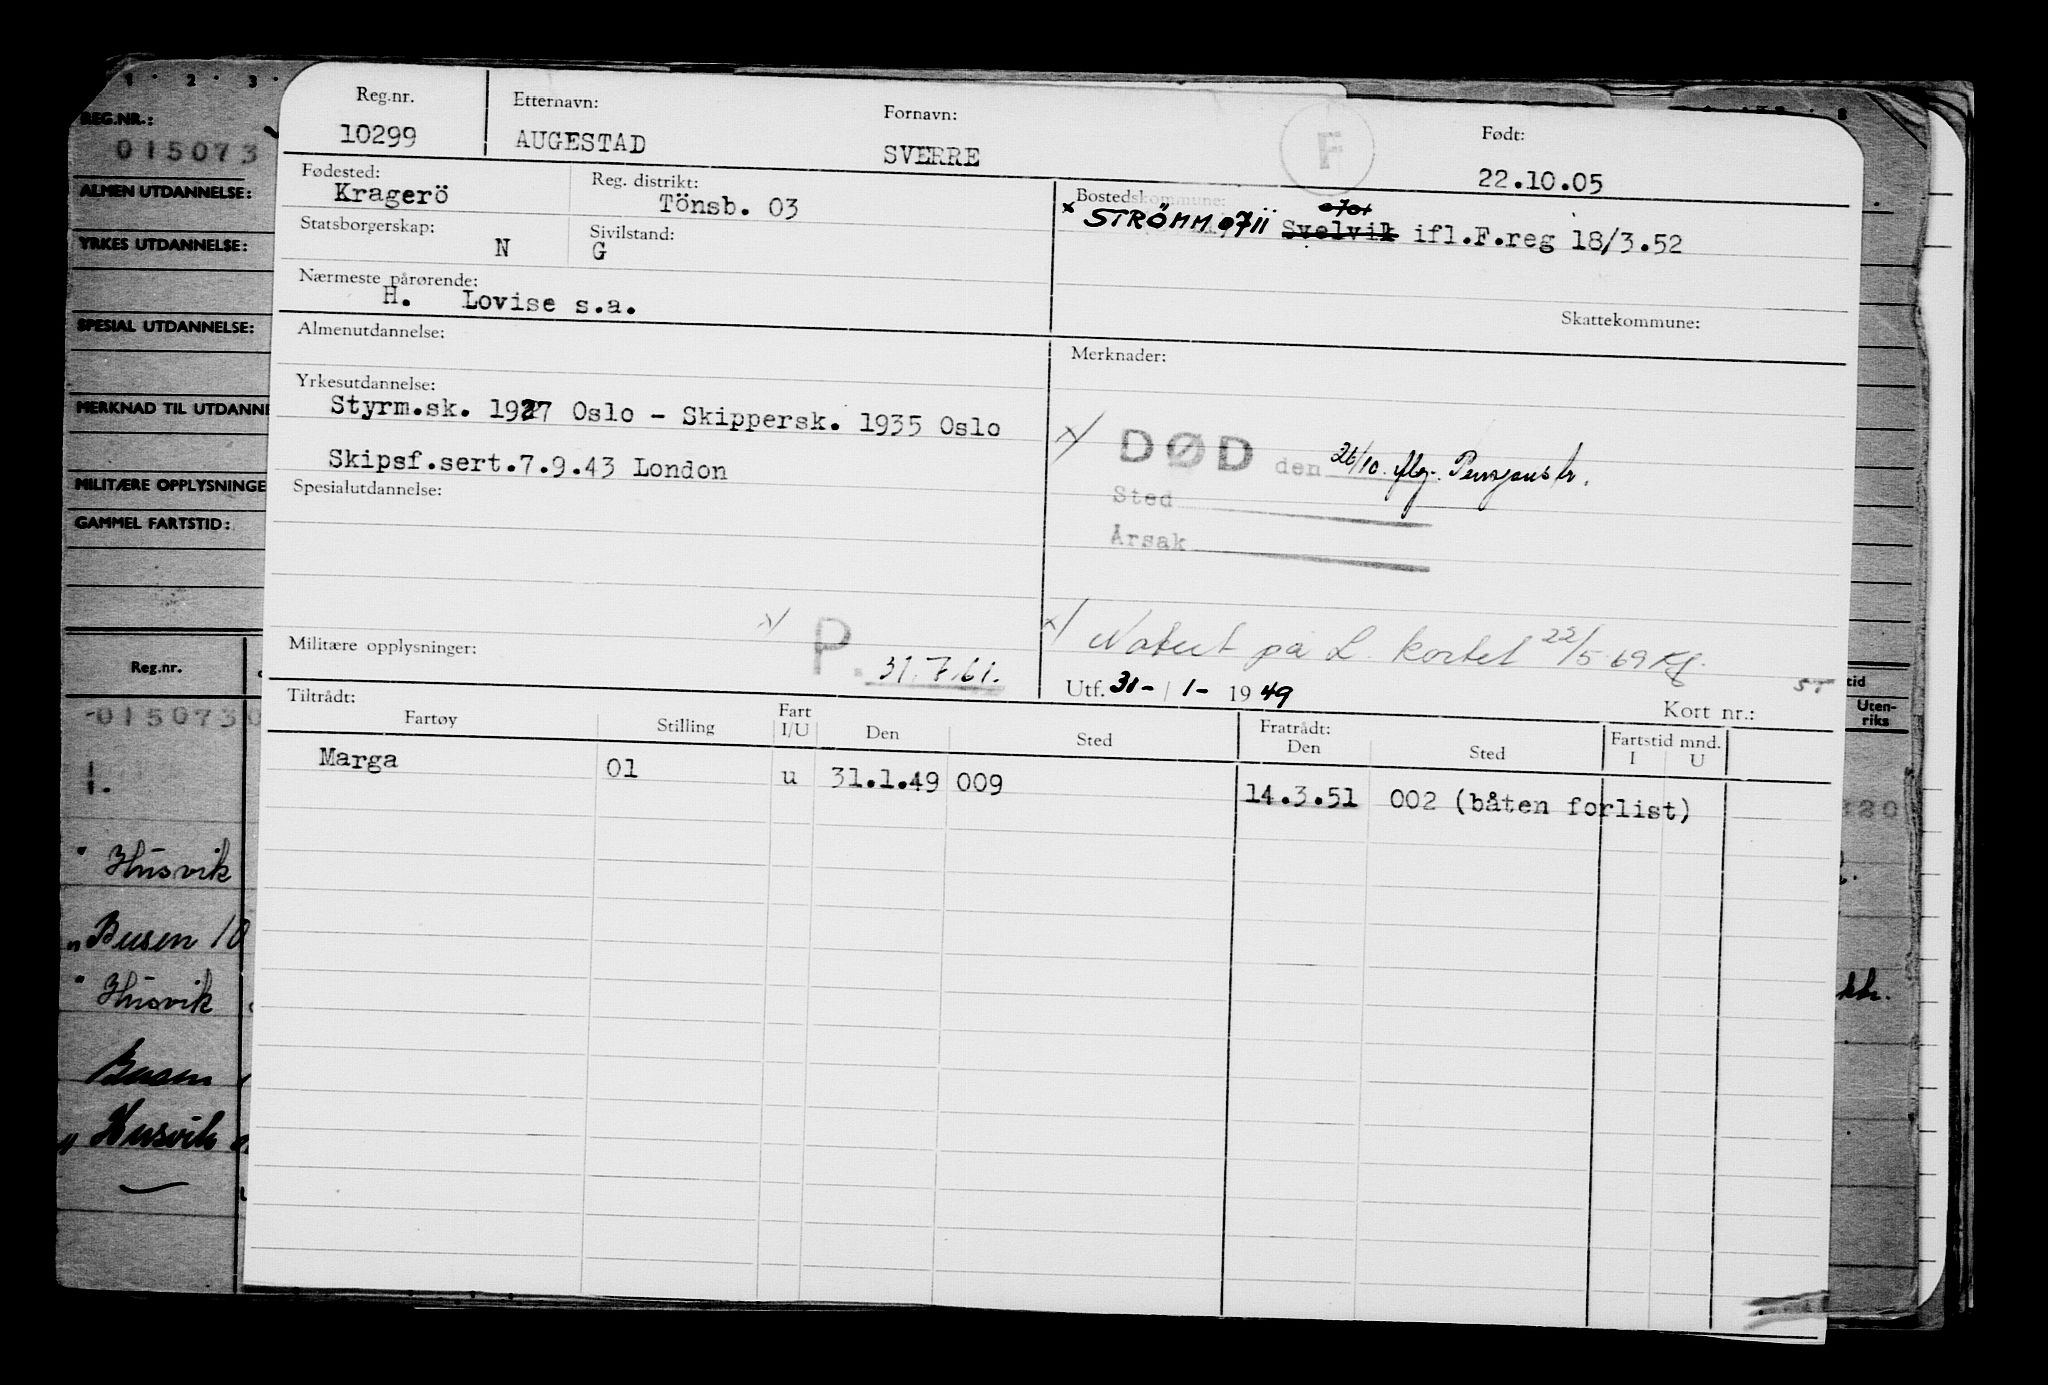 1 2 3
REG.NR.:
015073
ALMEN UTDANNELSE:
YRKES UTDANNELSE:
SPESIAL UTDANNELSE:
MERKNAD TIL UTDANNE
MILITÆRE OPPLYSNINGE
GAMMEL FARTSTID:
Reg.nr.
015073
Husvik
" Busen 10
" Husvik
Busen
" Husvik
Reg.nr.
10299
Etternavn:
AUGESTAD
Fornavn:
SVERRE
F
Født:
22.10.05
Fødested:
Kragerö
Reg. distrikt:
Tönsb. 03
Statsborgerskap:
N
Sivilstand:
G
Bostedskommune:
x STRÖMM 0711 Svelvik ifl.F.reg 18/3.52
0701
Nærmeste pårørende:
H. Lovise s.a.
Skattekommune:
Almenutdannelse:
Merknader:
Yrkesutdannelse:
Styrm.sk. 1927 Oslo - Skippersk. 1935 Oslo
Skipsf.sert.7.9.43 London
x/ DØD den
Sted
Årsak
Spesialutdannelse:
x/ P. 31.7.61.
x/ Notert på L. kortet 22/5-69
Militære opplysninger:
Utf. 31-/1-1949
Kort nr.:
Tiltrådt:
Fartøy Stilling Fart I/U Den Sted Fratrådt: Den Sted Fartstid mnd. I U
Marga 01 u 31.1.49 009 14.3.51 002 (båten forlist)
tid
Uten-
riks